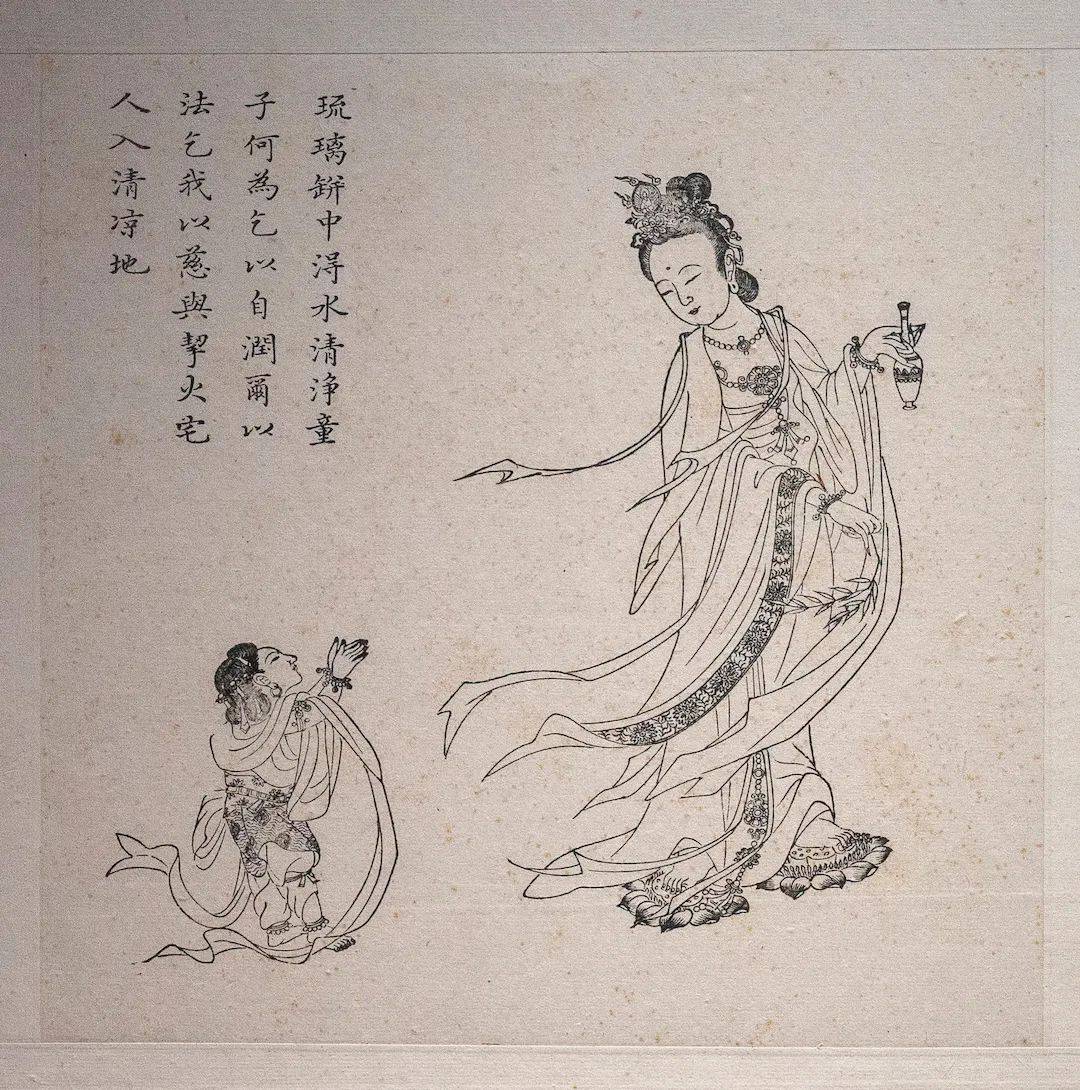 琉璃缾中淂水清浄童
子何為乞以自潤爾以
法乞我以慈與挈火宅
人入清凉地